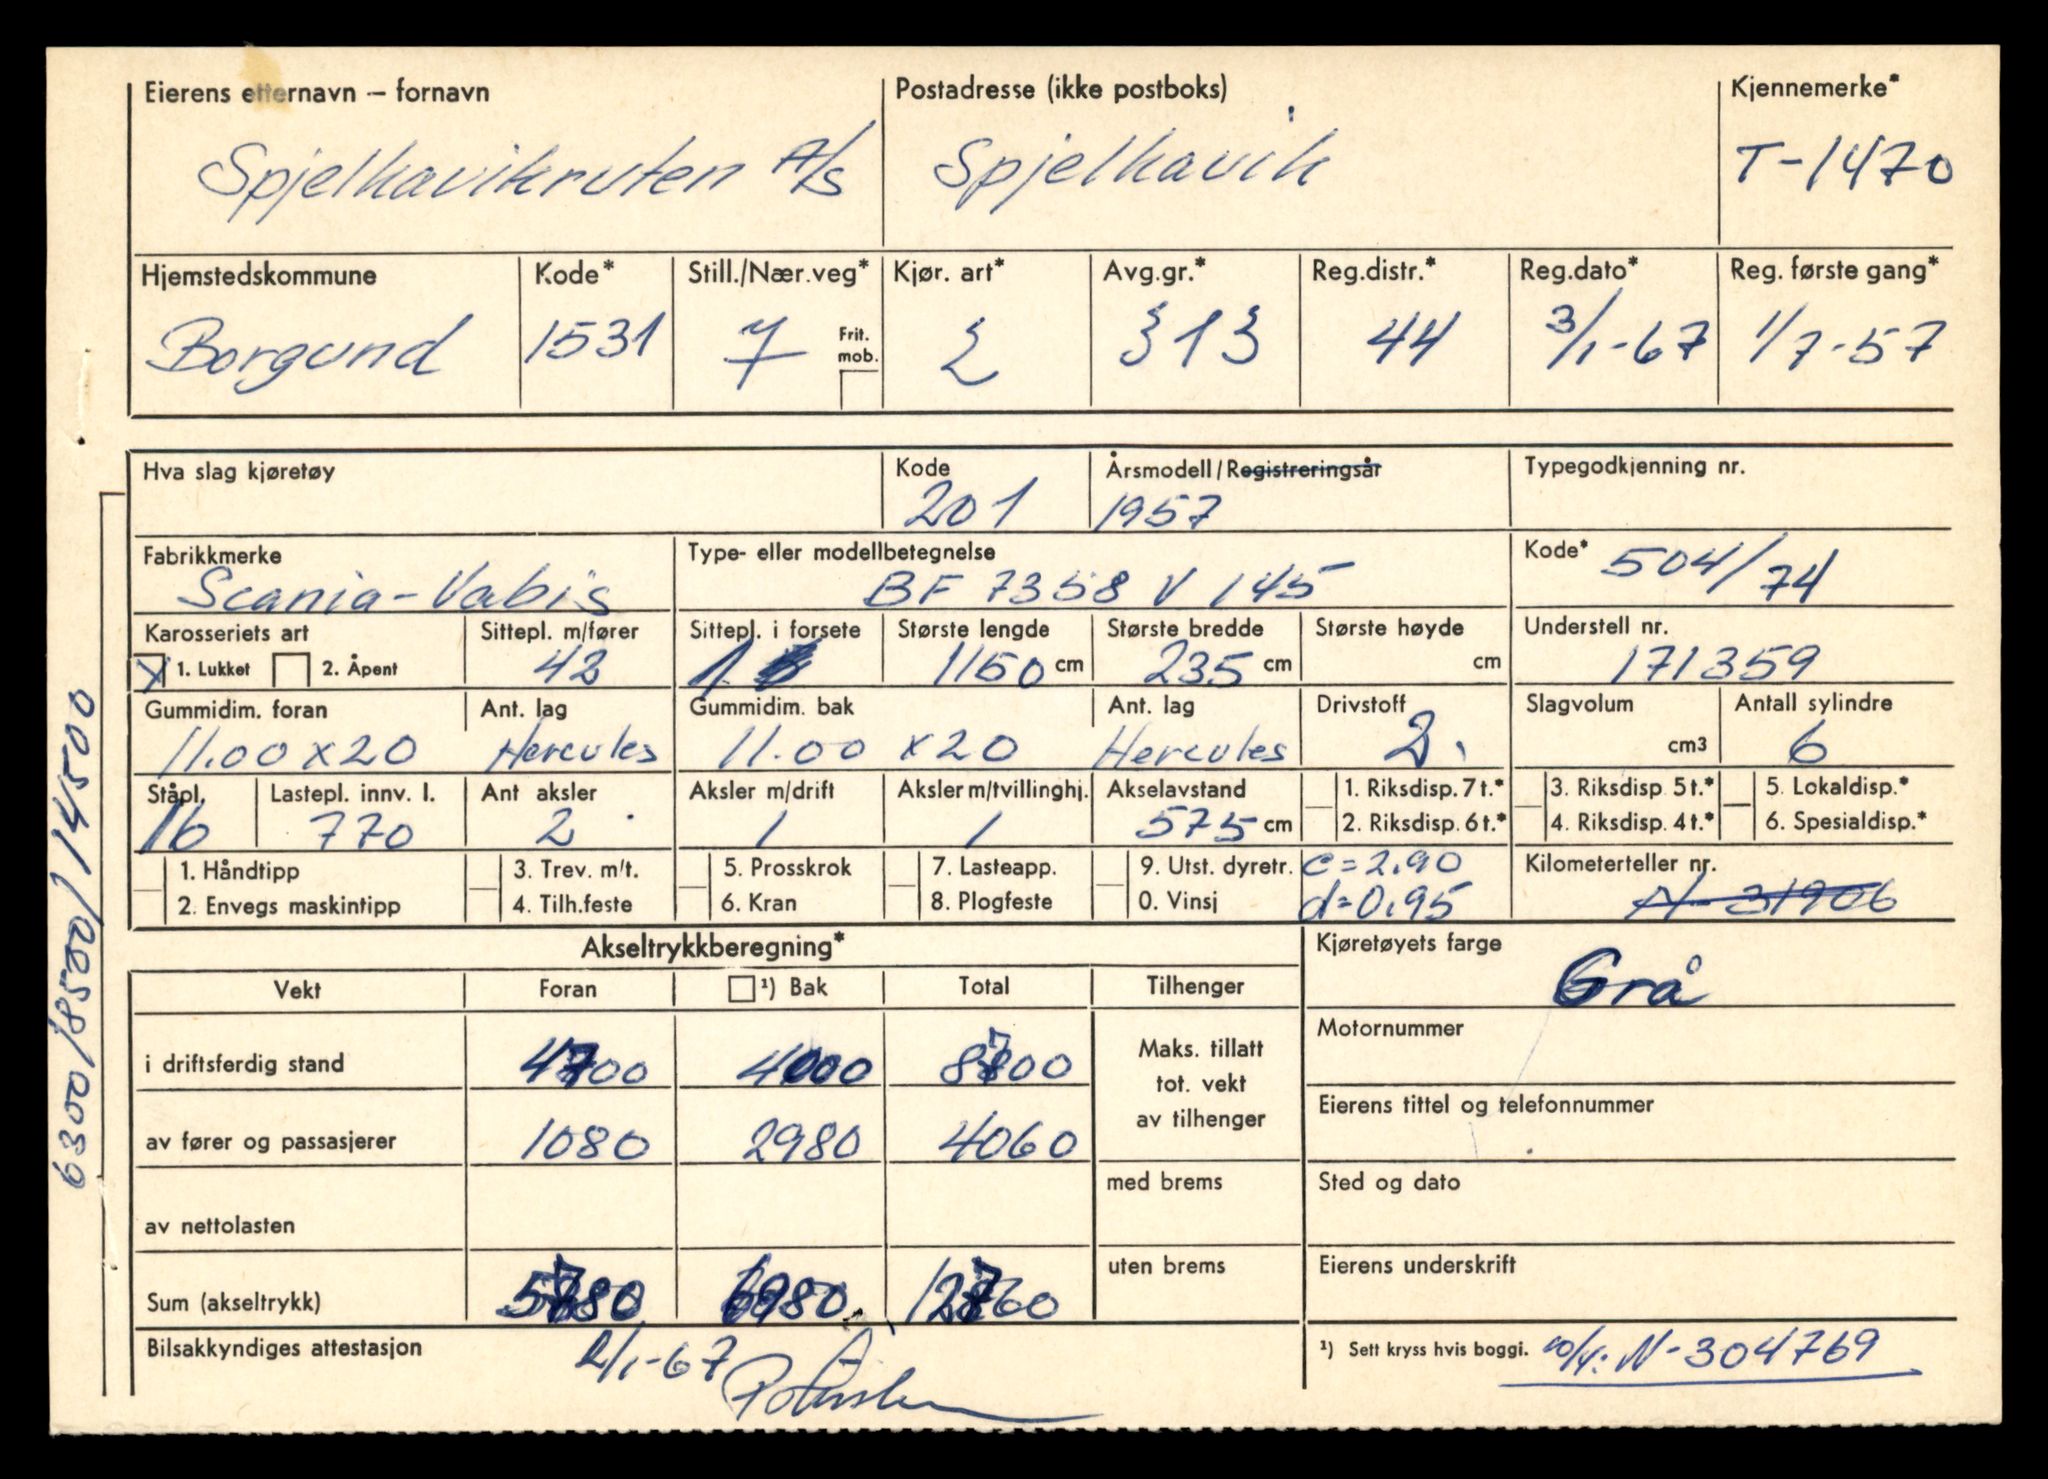 Eierens etternavn – fornavn
Spjelkavikruten A/S
Postadresse (ikke postboks)
Spjelkavik
Kjennemerke*
T-1470
Hjemstedskommune
Borgund
Kode*
1531
Still./Nær.veg*
7
Frit. mob.
Kjør. art*
2
Avg.gr.*
§ 13
Reg.distr.*
44
Reg.dato*
3/1-67
Reg. første gang*
1/7-57
Hva slag kjøretøy
Kode
201
Årsmodell/Registreringsår
1957
Typegodkjenning nr.
Fabrikkmerke
Scania-Vabis
Type- eller modellbetegnelse
BF 7358 V 145
Kode*
504/74
Karosseriets art
X 1. Lukket 2. Åpent
Sittepl. m/fører
42
Sittepl. i forsete
1
Største lengde
1150 cm
Største bredde
235 cm
Største høyde
cm
Understell nr.
171359
Gummidim. foran
11.00 x 20
Ant. lag
Hercules
Gummidim. bak
11.00 x 20
Ant. lag
Hercules
Drivstoff
2.
Slagvolum
cm3
Antall sylindre
6
Ståpl.
16
Lastepl. innv. l.
770
Ant aksler
2
Aksler m/drift
1
Aksler m/tvillinghj.
1
Akselavstand
575 cm
1. Riksdisp. 7 t.*
2. Riksdisp. 6 t.*
3. Riksdisp. 5 t.*
4. Riksdisp. 4 t.*
5. Lokaldisp.*
6. Spesialdisp.*
1. Håndtipp
2. Envegs maskintipp
3. Trev. m/t.
4. Tilh.feste
5. Prosskrok
6. Kran
7. Lasteapp.
8. Plogfeste
9. Utst. dyretr.
0. Vinsj
c=2.90
d=0.95
Kilometerteller nr.
N-31906
Akseltrykkberegning*
Vekt Foran ¹) Bak Total Tilhenger
i driftsferdig stand 4700 4000 8700
av fører og passasjerer 1080 2980 4060
av nettolasten
Sum (akseltrykk) 5780 6980 12760
Maks. tillatt
tot. vekt
av tilhenger
med brems
uten brems
Kjøretøyets farge
Grå
Motornummer
Eierens tittel og telefonnummer
Sted og dato
Eierens underskrift
Bilsakkyndiges attestasjon
2/1-67
¹) Sett kryss hvis boggi.
10/4: N-304769
6300/8500/14500